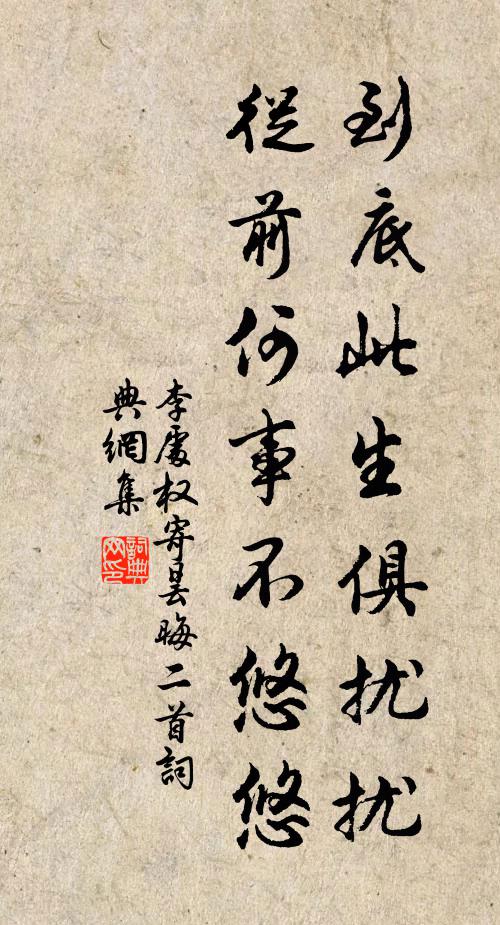 到底此生俱扰扰
從前何事不悠悠
李處权寄昙晦二首詞
典網集
詞典
网印